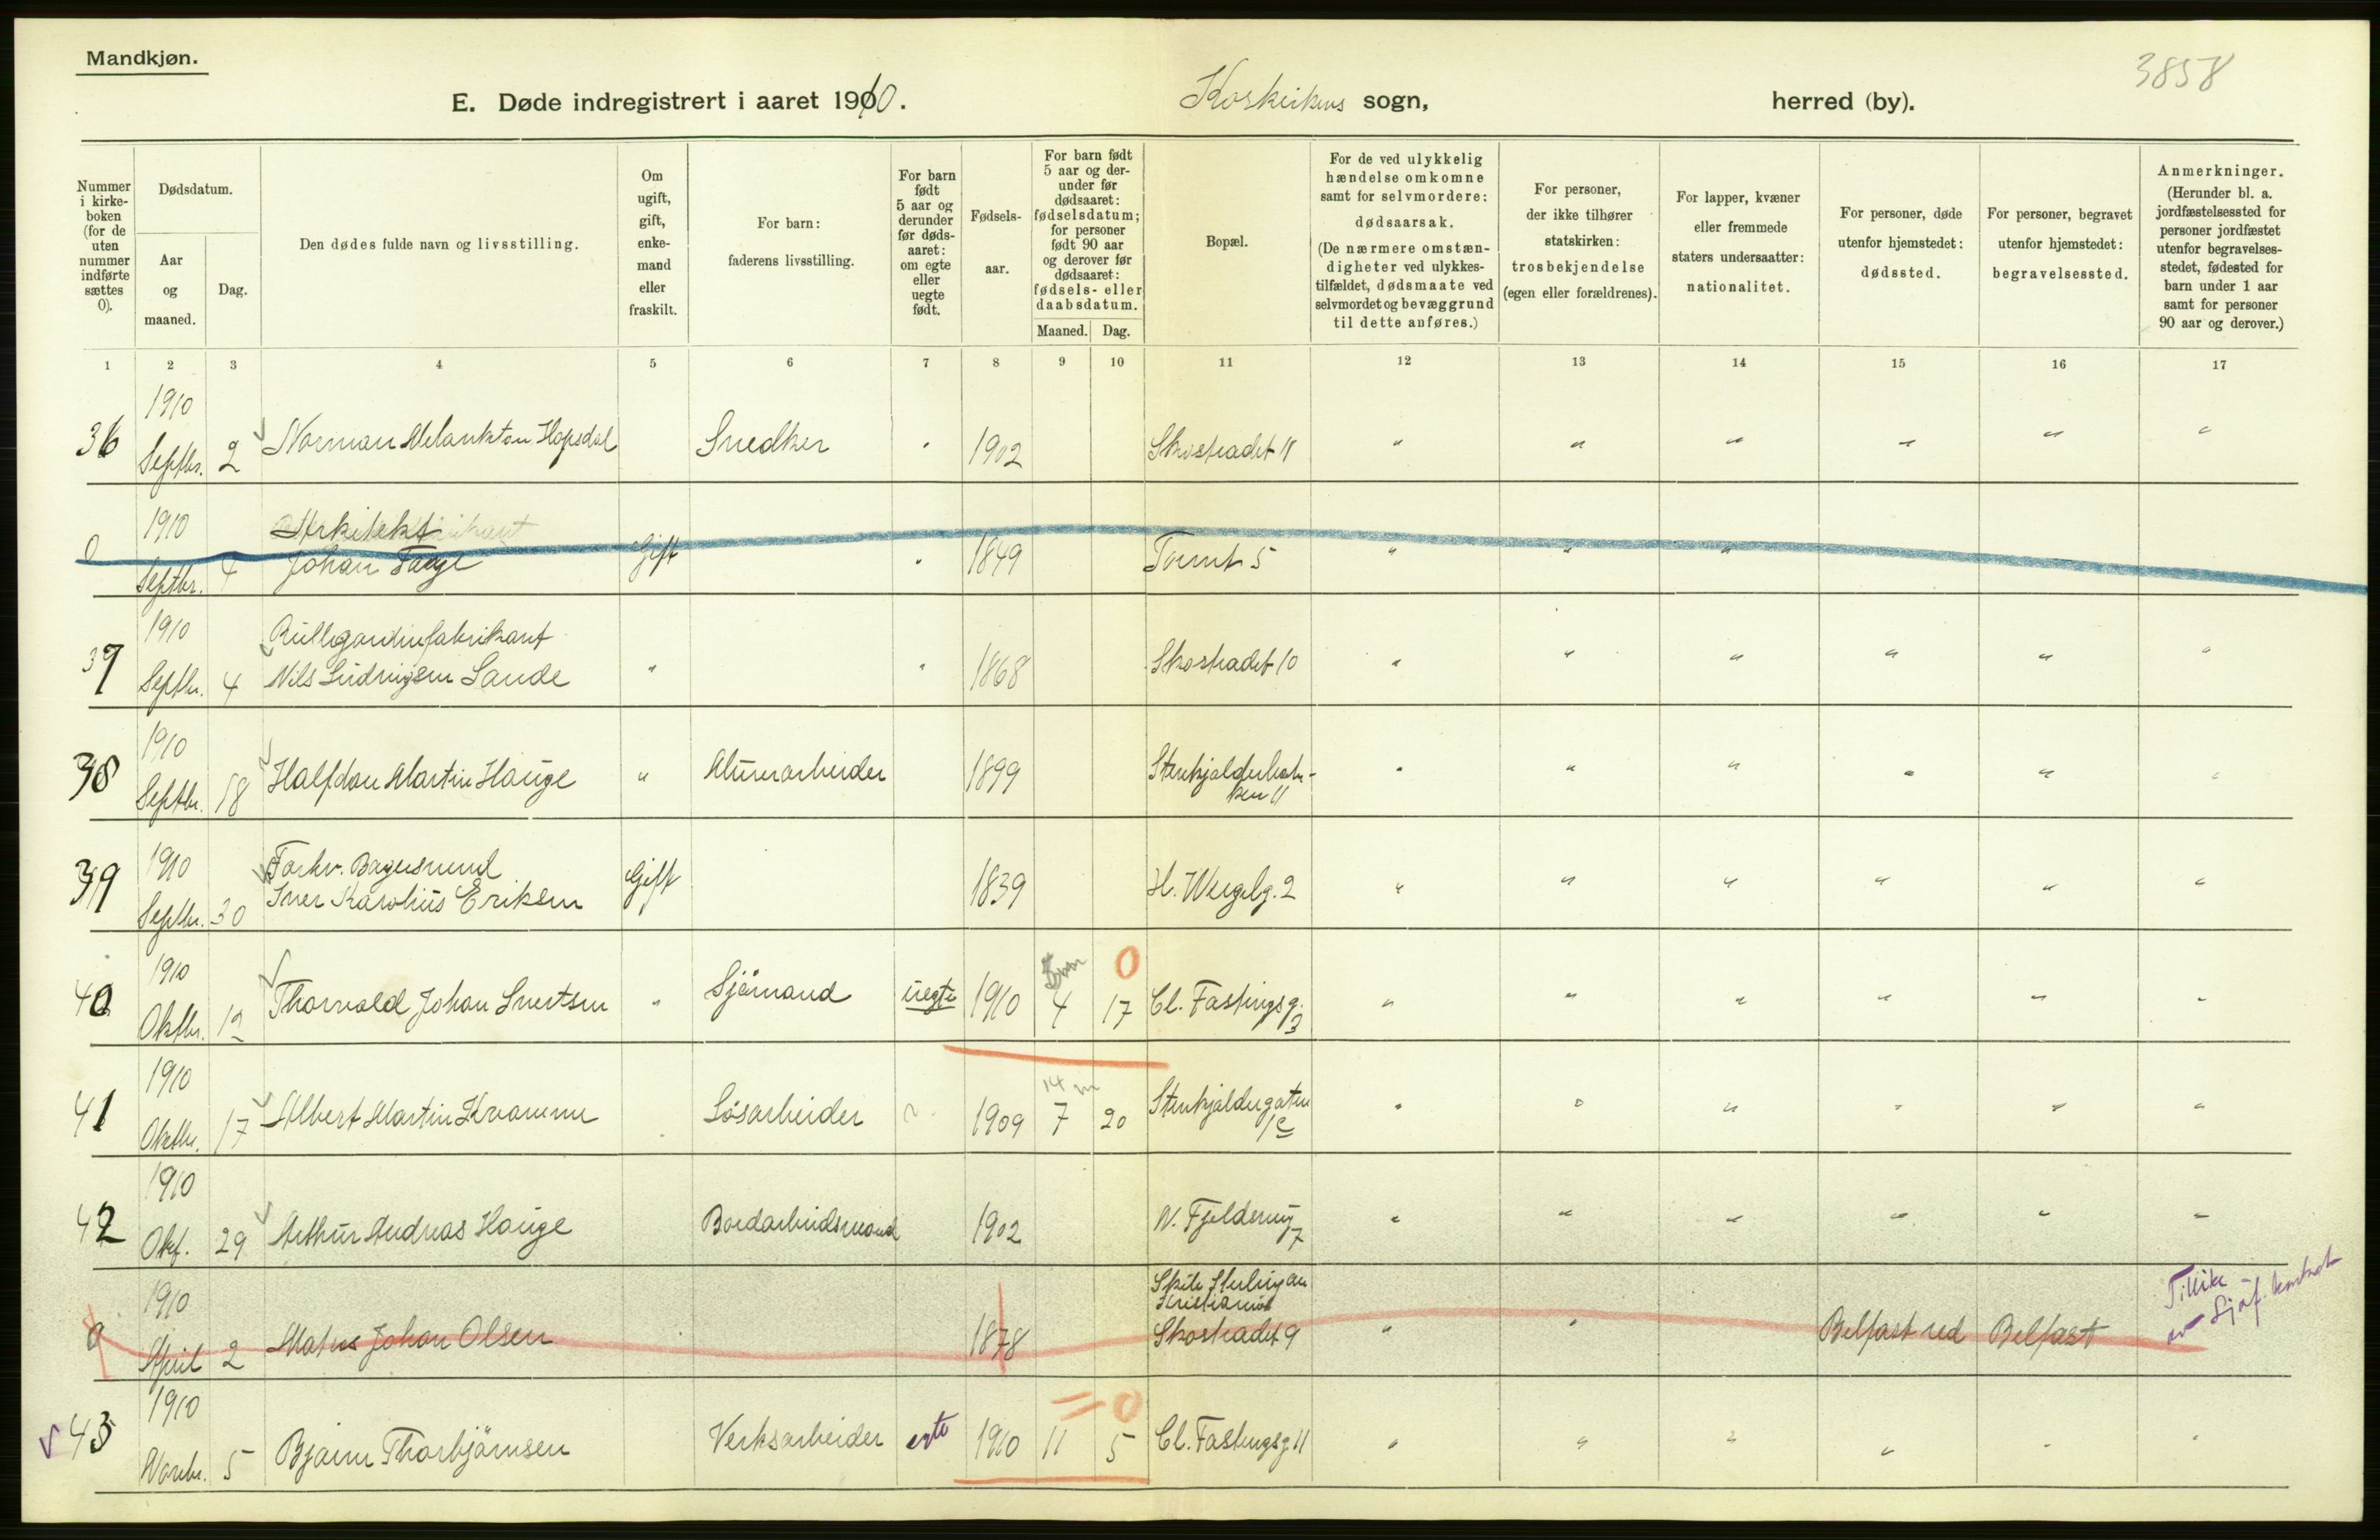 Mandkjøn.
3858
E. Døde indregistrert i aaret 1910.
Korskirkens sogn,
herred (by).
Nummer i kirke-boken (for de uten nummer indførte sættes 0).
Dødsdatum.
Aar og maaned.
Dag.
Den dødes fulde navn og livsstilling.
Om ugift, gift, enke-mand eller fraskilt.
For barn: faderens livsstilling.
For barn født 5 aar og derunder før døds-aaret: om egte eller uegte født.
Fødsels-aar.
For barn født 5 aar og der-under før dødsaaret: fødselsdatum; for personer født 90 aar og derover før dødsaaret: fødsels- eller daabsdatum.
Maaned. Dag.
Bopæl.
For de ved ulykkelig hændelse omkomne samt for selvmordere: dødsaarsak. (De nærmere omstæn-digheter ved ulykkes-tilfældet, dødsmaate ved selvmordet og bevæggrund til dette anføres.)
For personer, der ikke tilhører statskirken: trosbekjendelse (egen eller forældrenes).
For lapper, kvæner eller fremmede staters undersaatter: nationalitet.
For personer, døde utenfor hjemstedet: dødssted.
For personer, begravet utenfor hjemstedet: begravelsessted.
Anmerkninger. (Herunder bl. a. jordfæstelsessted for personer jordfæstet utenfor begravelses-stedet, fødested for barn under 1 aar samt for personer 90 aar og derover.)
1 2 3 4 5 6 7 8 9 10 11 12 13 14 15 16 17
1910
36 Septbr. 2 Norman Melankton Hopsdal Snedker " 1902 Skostrædet 11 " " " " " "
1910 Arkitekt
0 Septbr. 4 Johan Fauge Gift " 1849 Torvet 5 " " "
1910 Rullegardinfabrikant
37 Septbr. 4 Nils Ludvigsen Sande " " 1868 Skostrædet 10 " " " " " "
1910
38 Septbr. 18 Halfdan Martin Hauge " Murerarbeider 1899 Stenkjelderbak-
ken 11 " " " " " "
1910 Forhv. Bagersvend
39 Septbr. 30 Iver Karolius Eriksen Gift 1839 H. Wergelg. 2 " " " " " "
1910 5 m 0
40 Oktbr. 12 Thorvald Johan Sivertsen " Sjömand uegte 1910 4 17 Cl. Fastingsg.
3 " " " " " "
1910 14 m
41 Oktbr. 17 Albert Martin Kvamme Løsarbeider " 1909 7 20 Stenkjeldergaten
1c " " " " " "
1910
42 Okt. 29 Arthur Andreas Hauge Bordarbeidsmand 1902 N. Fjeldsmug
7 " " " " " "
1910
Kristiania
0 April 2 Johan Olsen 1878 Skostrædet 9 " " Belfast red Belfast
Tillike
1910 = 0
43 Novbr. 5 Bjarne Thorbjörnsen Verksarbeider egte 1910 11 5 Cl. Fastingsg 11 " " " " " "